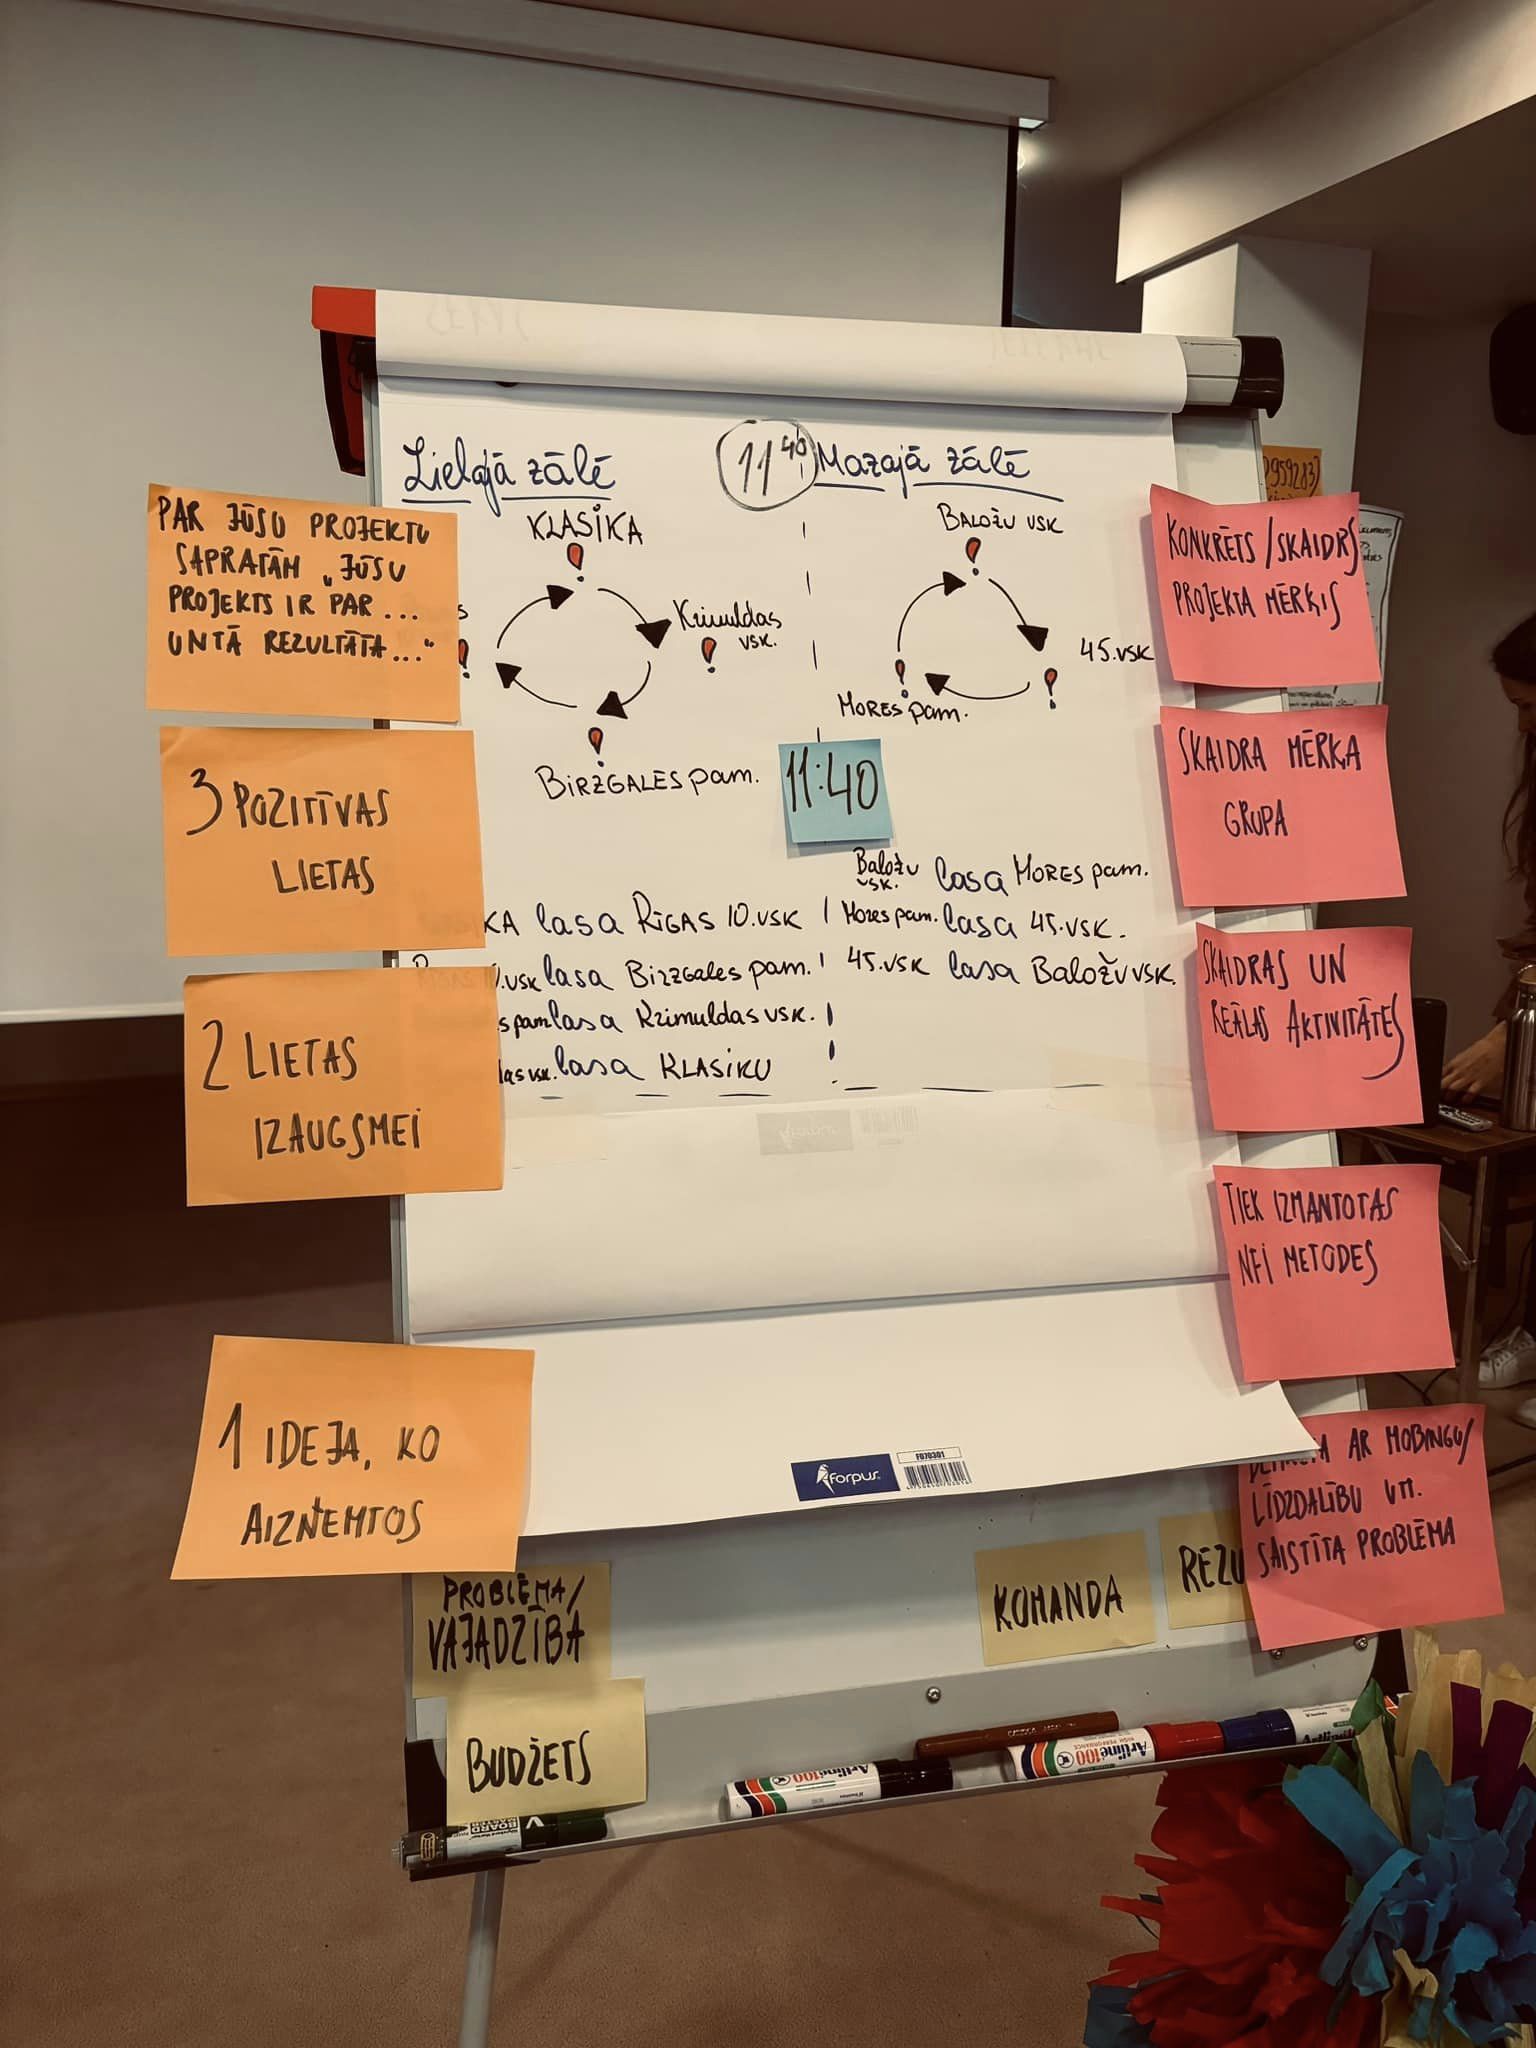 Lielajā zālē
11⁴⁰
Mazajā zālē
KLASIKA
Krimuldas
vsk.
BIRZGALES pam.
BALOŽU VSK
45.VSK
MORES pam.
11:40
KLASIKA lasa RĪGAS 10.VSK
RĪGAS 10.VSK lasa BIRZGALES pam.
pam lasa Krimuldas VSK.
vsk. lasa KLASIKU
Baložu
vsk. lasa MORES pam.
Mores pam. lasa 45.VSK.
45.VSK lasa BALOŽU VSK.
PAR JŪSU PROJEKTU
SAPRATĀM „JŪSU
PROJEKTS IR PAR...
UN TĀ REZULTĀTĀ..."
3 POZITĪVAS
LIETAS
2 LIETAS
IZAUGSMEI
1 IDEJA, KO
AIZŅEMTOS
KONKRĒTS/SKAIDRS
PROJEKTA MĒRĶIS
SKAIDRA MĒRĶA
GRUPA
SKAIDRAS UN
REĀLAS AKTIVITĀTES
TIEK IZMANTOTAS
NFI METODES
AR MOBINGU/
LĪDZDALĪBU UTT.
SAISTĪTA PROBLĒMA
forpus
FO70301
PROBLĒMA/
VAJADZĪBA
KOMANDA
REZU
BUDŽETS
Artline 100
Artline 100
HIGH PERFORMANCE
Artline
V
BOARD
MASTER